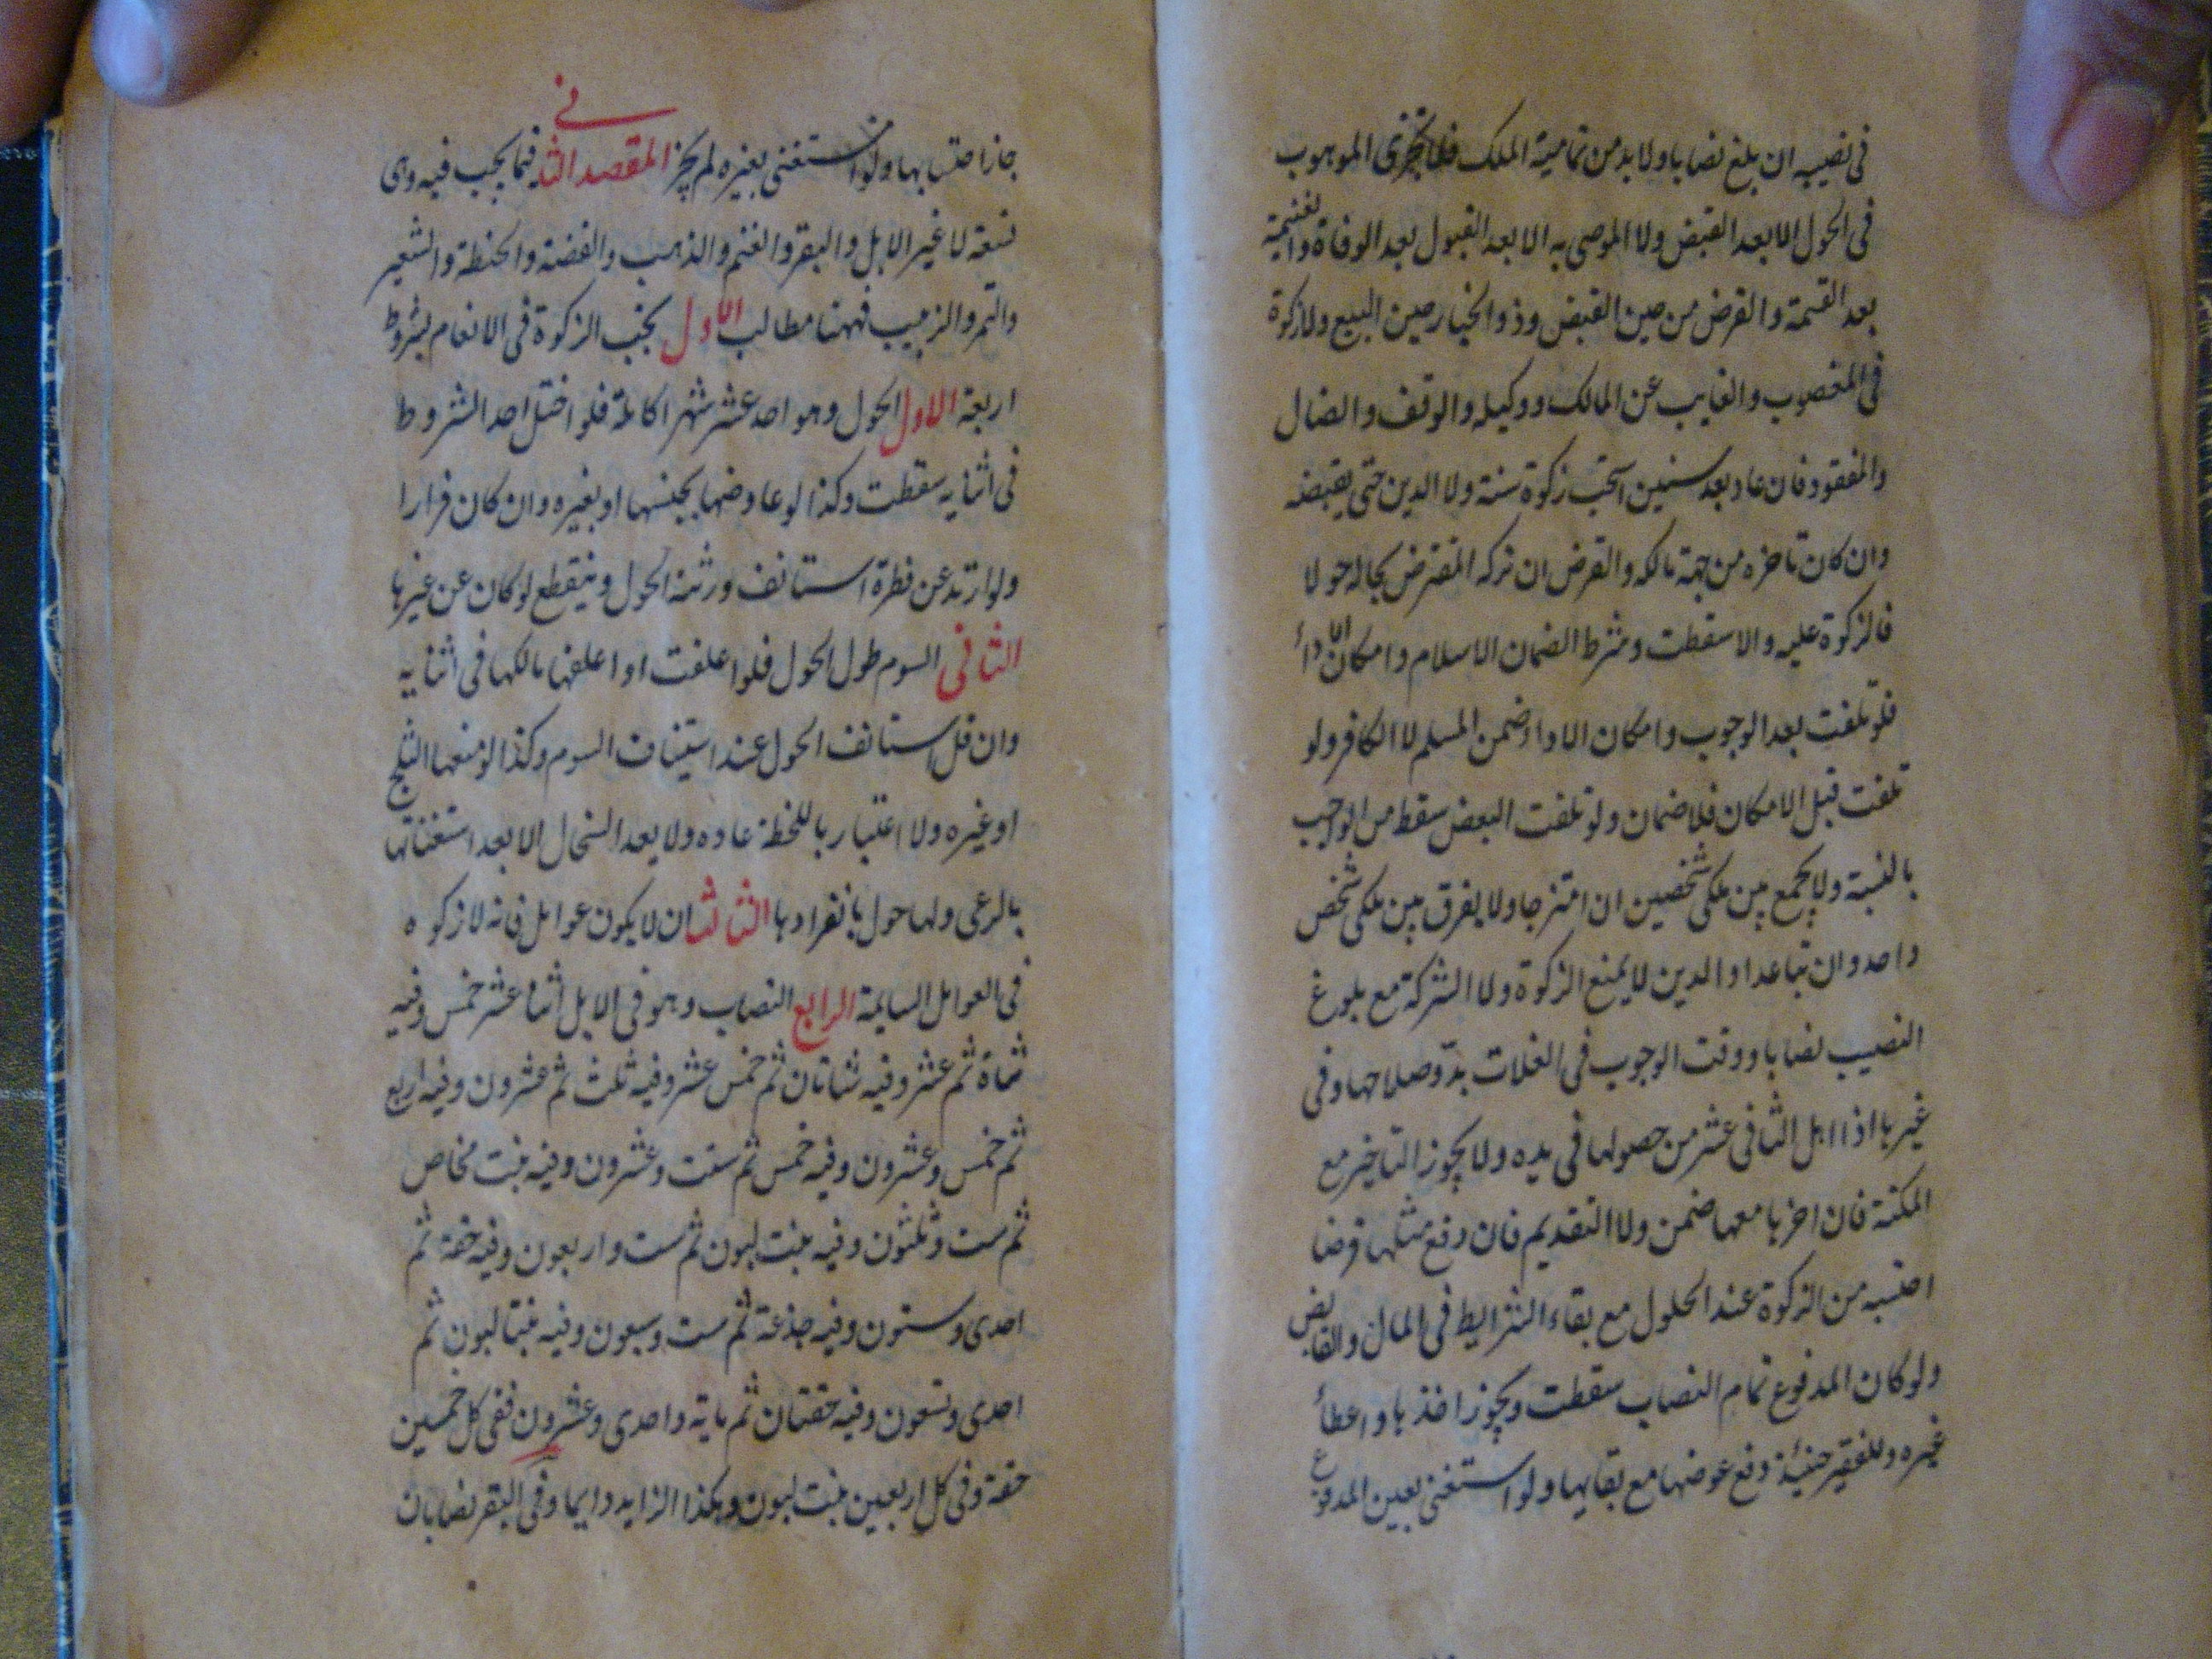 في نصيبه ان بلغ نصابا ولا بد من تمامية الملك فلا يجرى الموهوب
في الحول الا بعد القبض ولا الموصى به الا بعد القبول بعد الوفاة والغنيمة
بعد القسمة والقرض من حين القبض وذو الخيار حين البيع ولا زكوة
في المغصوب والغايب عن المالك ووكيله والوقف والضال
والمفقود فان عاد بعد سنين استحب زكوة سنة ولا الدين حتى يقبضه
وان كان تاخره من جهة مالكه والقرض ان تركه المقترض بحاله حولا
فالزكوة عليه والا سقطت وشرط الضمان الاسلام وامكان الاداء
فلو تلفت بعد الوجوب وامكان الاداء ضمن المسلم لا الكافر ولو
تلفت قبل الامكان فلا ضمان ولو تلفت البعض سقط من الواجب
بالنسبة ولا يجمع بين ملكي شخصين ان امتزجا ولا يفرق بين ملكي شخص
واحد وان تباعدا والدين لا يمنع الزكوة ولا الشركة مع بلوغ
النصيب نصابا ووقت الوجوب في الغلات بدو صلاحها وفي
غيرها اذا اهل الثاني عشر من حصولها في يده ولا يجوز التاخير مع
المكنة فان اخر ها معها ضمن ولا التقديم فان دفع مثلها قرضا
احتسبه من الزكوة عند الحلول مع بقاء الشرايط في المال والقابض
ولو كان المدفوع تمام النصاب سقطت ويجوز اخذها واعطاء
غيره وللفقير حينئذ دفع عوضها مع بقايها ولو استغنى بعين المدفوع
جاز احتسابها ولو استغنى بغيره لم يجز المقصد الثاني فيما يجب فيه وهي
تسعة لا غير الابل والبقر والغنم والذهب والفضة والحنطة والشعير
والتمر والزبيب فههنا مطالب الاول تجب الزكوة في الانعام بشروط
اربعة الاول الحول وهو احد عشر شهرا كاملة فلو اختل احد الشروط
في اثنايه سقطت وكذا لو عاوضها بجنسها او بغيره وان كان فرارا
ولو ارتد عن فطرة استانف ورثته الحول وينقطع لو كان عن غيرها
الثاني السوم طول الحول فلو اعلفت او اعلفها مالكها في اثنايه
وان قل استانف الحول عند استيناف السوم وكذا لو منعها الثلج
او غيره ولا اعتبار باللحظة عادة ولا يعد السخال الا بعد استغنائها
بالرعي ولها حول بانفرادها الثالث ان لا يكون عوامل فانه لا زكوة
في العوامل السايمة الرابع النصاب وهو في الابل اثنا عشر خمس وفيه
شاة ثم عشر وفيه شاتان ثم خمس عشر وفيه ثلث ثم عشرون وفيه اربع
ثم خمس وعشرون وفيه خمس ثم ست وعشرون وفيه بنت مخاض
ثم ست وثلثون وفيه بنت لبون ثم ست واربعون وفيه حقة ثم
احدى وستون وفيه جذعة ثم ست وسبعون وفيه بنتا لبون ثم
احدى وتسعون وفيه حقتان ثم ماية واحدى وعشرون ففي كل خمسين
حقة وفي كل اربعين بنت لبون وهكذا الزايد دايما وفي البقر نصابان